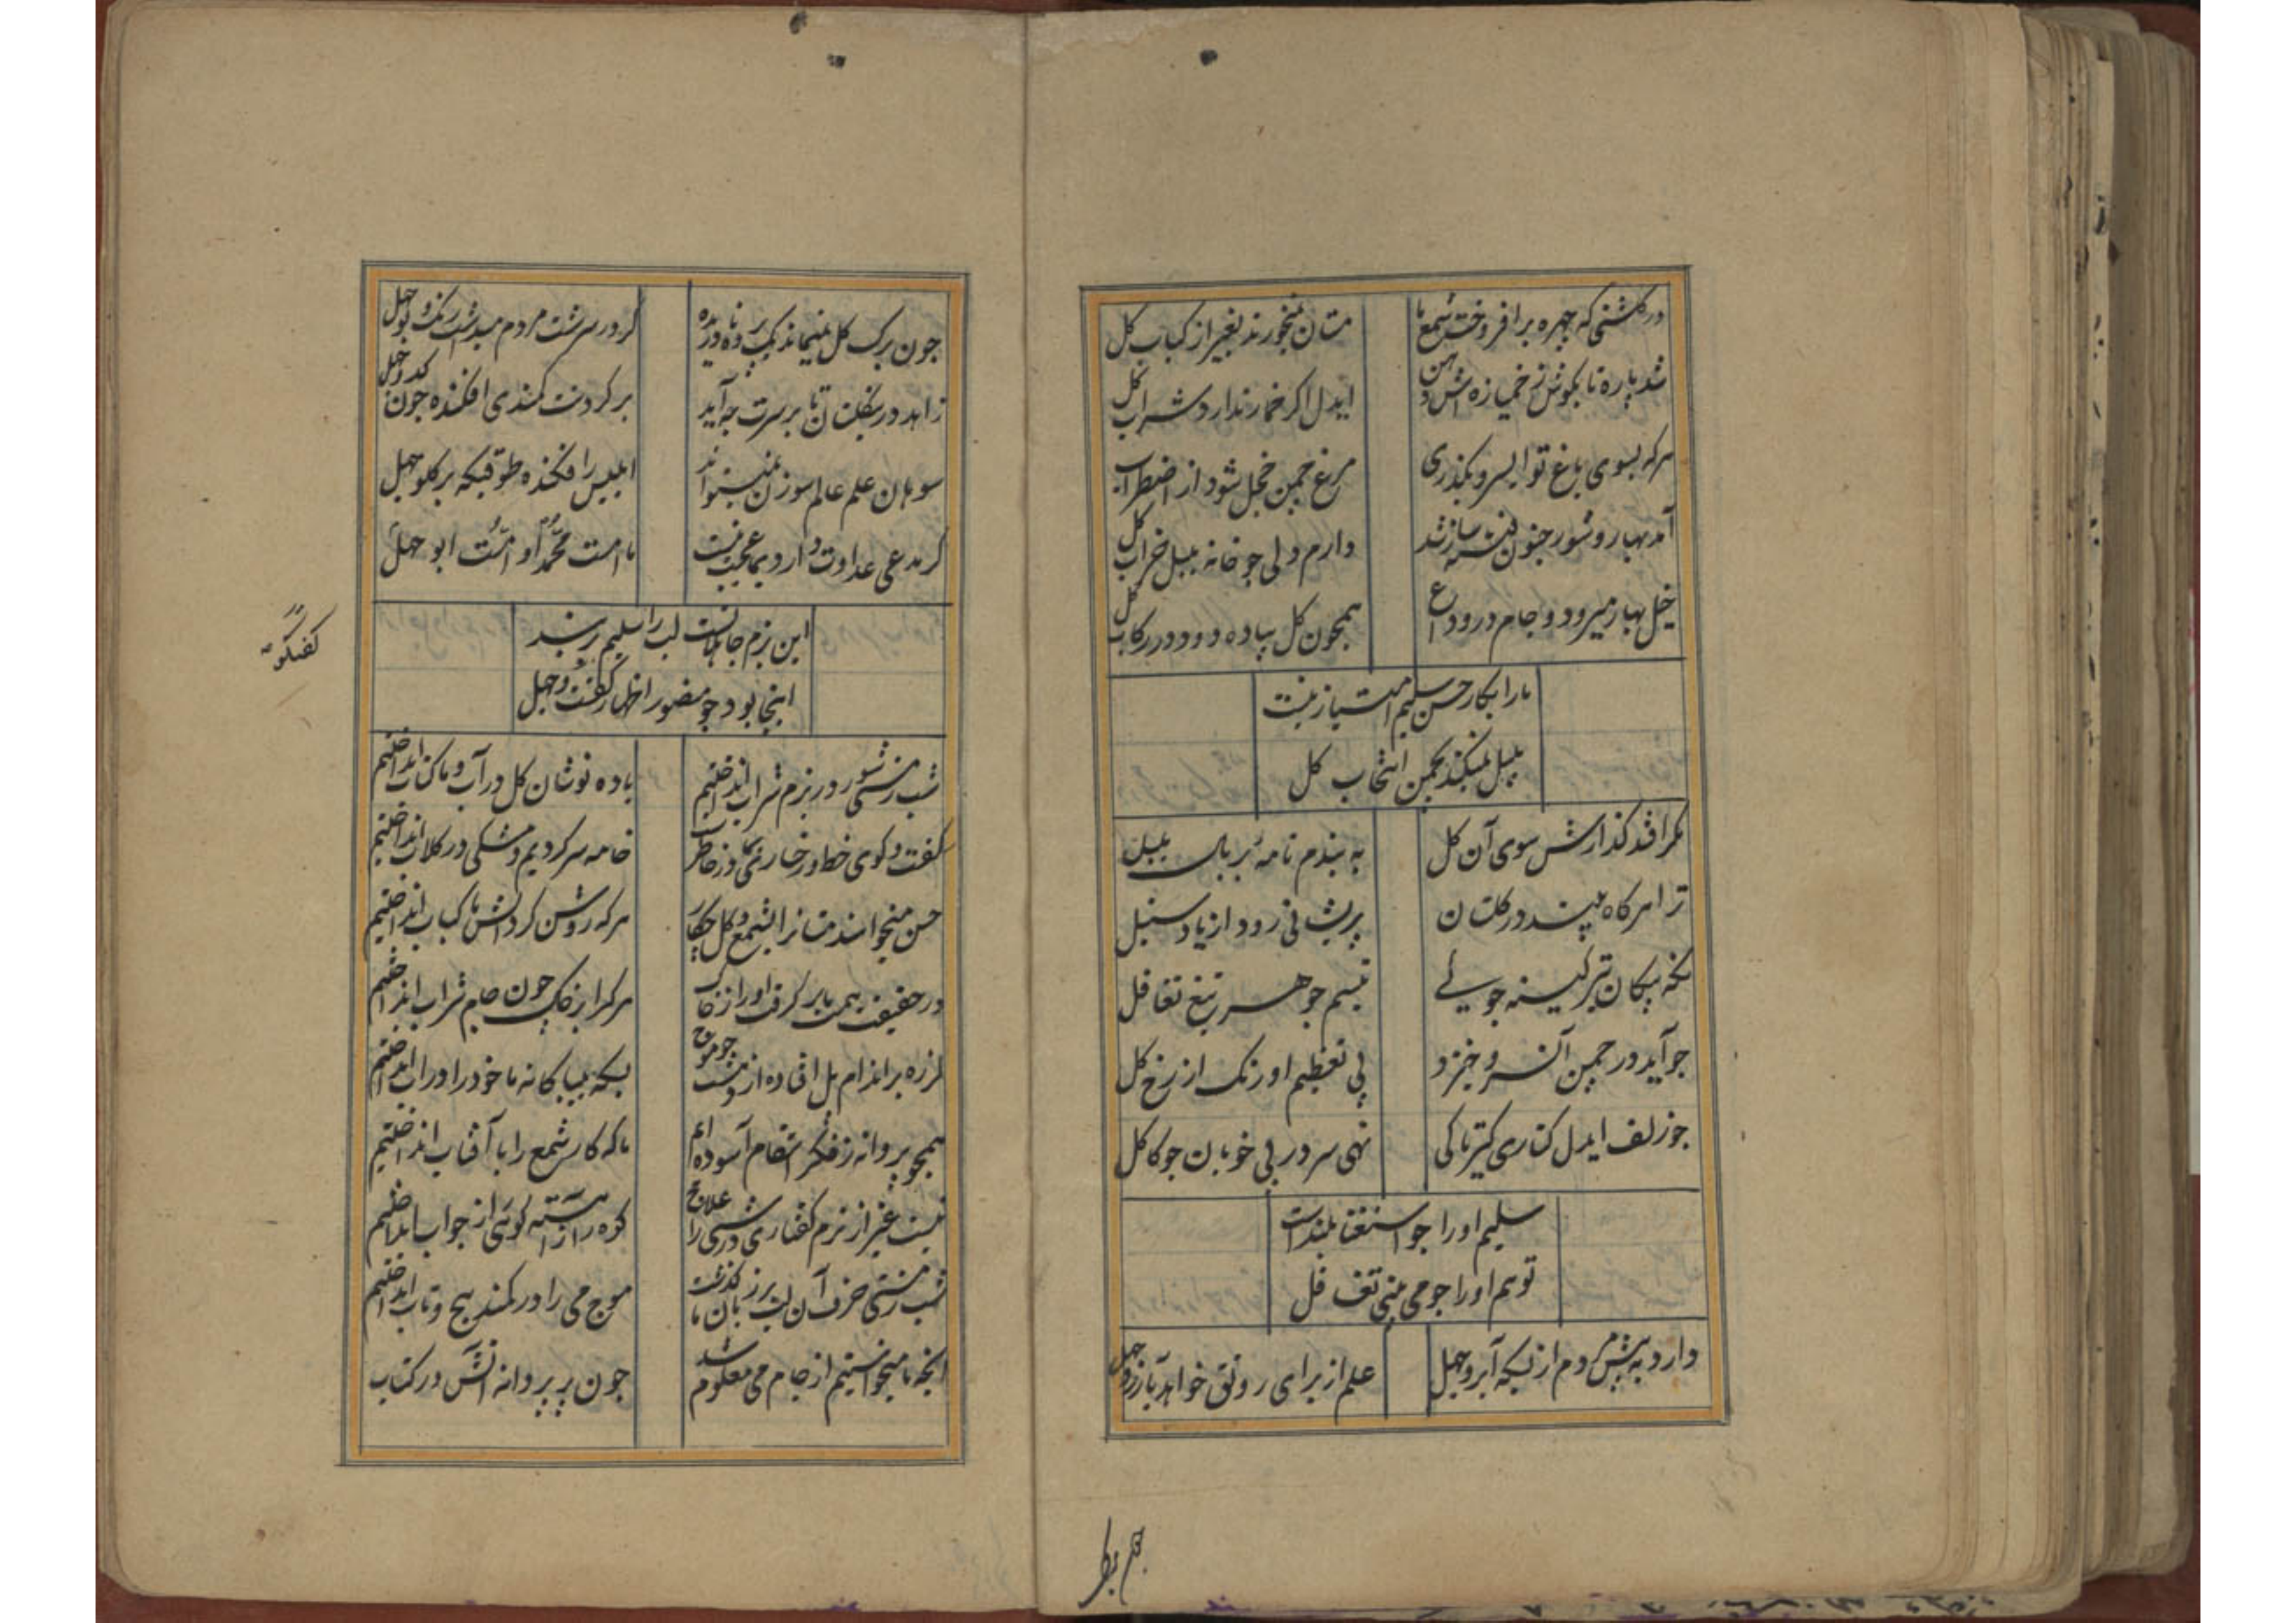 در گلشنی که چهره برافروخت شمع ما
مستان نمیخورند بغیر از کباب گل
شد پاره تا بگوش ز خمیازه اش دهن
ایدل اگر خمار ندارد شراب گل
هرکه بسوی باغ تو ای سرو بگذری
مرغ چمن خجل شود از اضطراب گل
آمد بهار و شور جنون فتنه ساز شد
دارم دلی چو خانه بلبل خراب گل
خیل بهار میرود و جام در وداع
همچون گل پیاده دود در رکاب گل
ما را بکار حسن سلیم امتیاز نیست
بلبل نمیکند بچمن انتخاب گل
مگر افتد گذارش سوی آن گل
به بندم نامه بر بال بلبل
ترا هرگاه بیند در گلستان
پریشانی رود از یاد سنبل
نگه پیکان تیر کینه جوئے
تبسم جوهر تیغ تغافل
چو آید در چمن آن سرو خیزد
پی تعظیم او رنگ از رخ گل
چو زلف ایدل کناری گیر تا کی
نهی سر در پی خوبان چو کاکل
سلیم او را چو استغنا بلندست
تو هم او را چو می بینی تغافل
دارد به پیش مردم از بسکه آبرو جهل
علم از برای رونق خواهد بآرزو جهل
بهم بطر
چون برگ گل نمیماند یک پرده نادریده
گر در سرشت مردم میداشت رنگ و بو جهل
زاهد در بلستان تا بر سرت چه آید
بر گردنت کمندی افکنده چون کدو جهل
سوهان علم عالم سوزن نمیتواند
ابلیس را فکنده طوقیکه بر گلو جهل
گر مدعی عداوت دارد بما عجب نیست
ما امت محمد او امت ابو جهل
این بزم جاهلانست لب را سلیم بربند
اینجا بود چو منصور اظهار گفت و جهل
گفتگو
شب ز مستی شور در بزم شراب انداختیم
باده نوشان گل در آب و ما کتاب انداختیم
گفت و گوی خط و رخساری گذر در خاطر
خامه سر کردیم و مشکی در گلاب انداختیم
حسن میخواند مستانرا شمع و گل چکار
هر که روشن کرد آتش ما کباب انداختیم
در حقیقت همت ما برگرفت او را ز خاک
هر کرا بر خاک چون جام شراب انداختیم
لرزه بر اندام پل افتاده از دهشت چو موج
بسکه بیباکانه ما خود را در آب انداختیم
همچو پروانه ز فکر انتقام آسوده ایم
ما که کار شمع را با آفتاب انداختیم
نیست غیر از نرم گفتاری درشتی را علاج
کوه را از آهسته گوئی از جواب انداختیم
شب ز مستی حرف آن لب بر زبان ما گذشت
موج می را در کمند پیچ و تاب انداختیم
آنچه ما میخواستیم از جام می معلوم شد
چون پر پروانه آتش در کتاب